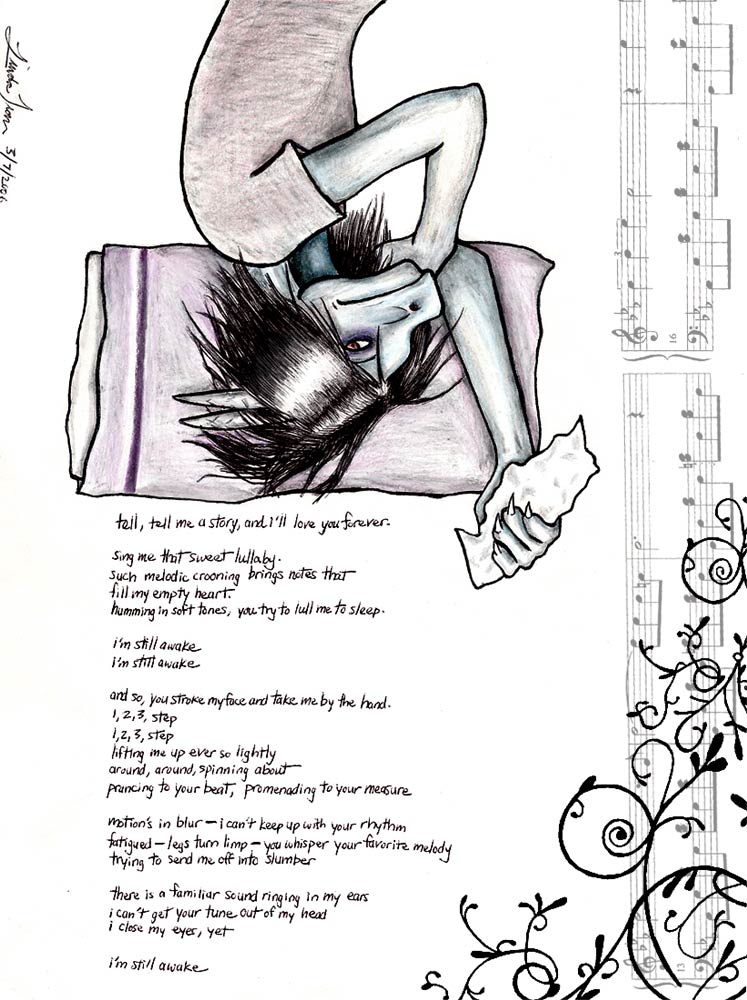 3/7/2006
tell, tell me a story, and i'll love you forever.
sing me that sweet lullaby.
such melodic crooning brings notes that
fill my empty heart.
humming in soft tones, you try to lull me to sleep.
i'm still awake
i'm still awake
and so, you stroke my face and take me by the hand.
1, 2, 3, step
1, 2, 3, step
lifting me up ever so lightly
around, around, spinning about
prancing to your beat, promenading to your measure
motion's in blur – i can't keep up with your rhythm
fatigued – legs turn limp – you whisper your favorite melody
trying to send me off into slumber
there is a familiar sound ringing in my ears
i can't get your tune out of my head
i close my eyes, yet
i'm still awake
16
13